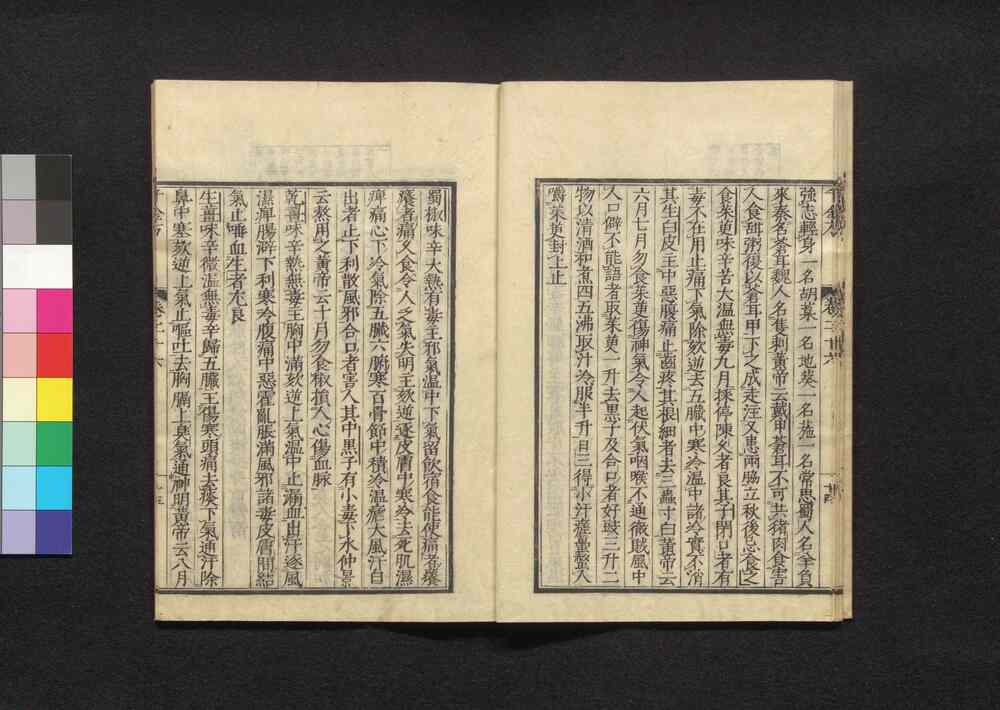 強志輕身一名胡葈一名地葵一名葹一名常思蜀人名羊負
來秦名蒼耳魏人名隻刺黃帝云戴甲蒼耳不可共猪肉食害
人食甜粥復以蒼耳甲下之成走注又患兩脇立秋後忌食之
食茱萸味辛苦大温無毒九月採停陳久者良其子閉口者有
毒不任用止痛下氣除欬逆去五臟中寒冷温中諸冷實不消
其生白皮主中惡腹痛止齒疼其根細者去三蟲寸白黃帝云
六月七月勿食茱萸傷神氣令人起伏氣咽喉不通徹賊風中
人口僻不能語者取茱萸一升去黒子及合口者好豉三升二
物以清酒和煮四五沸取汁冷服半升日三得小汗瘥蠆螫人
嚼茱萸封上止
千金方
卷二十六
蜀椒味辛大熱有毒主邪氣温中下氣留飲宿食能使痛者癢
癢者痛久食令人乏氣失明主欬逆逐皮膚中寒冷去死肌濕
痺痛心下冷氣除五臟六腑寒百骨節中積冷温瘧大風汗自
出者止下利散風邪合口者害人其中黒子有小毒下水仲景
云熬用之黃帝云十月勿食椒損人心傷血脉
乾薑味辛熱無毒主胸中滿欬逆上氣温中止漏血出汗逐風
濕痺腸澼下利寒冷腹痛中惡霍亂脹滿風邪諸毒皮膚間結
氣止唾血生者尤良
生薑味辛微温無毒辛歸五臟主傷寒頭痛去痰下氣通汗除
鼻中塞欬逆上氣止嘔吐去胸膈上臭氣通神明黃帝云八月